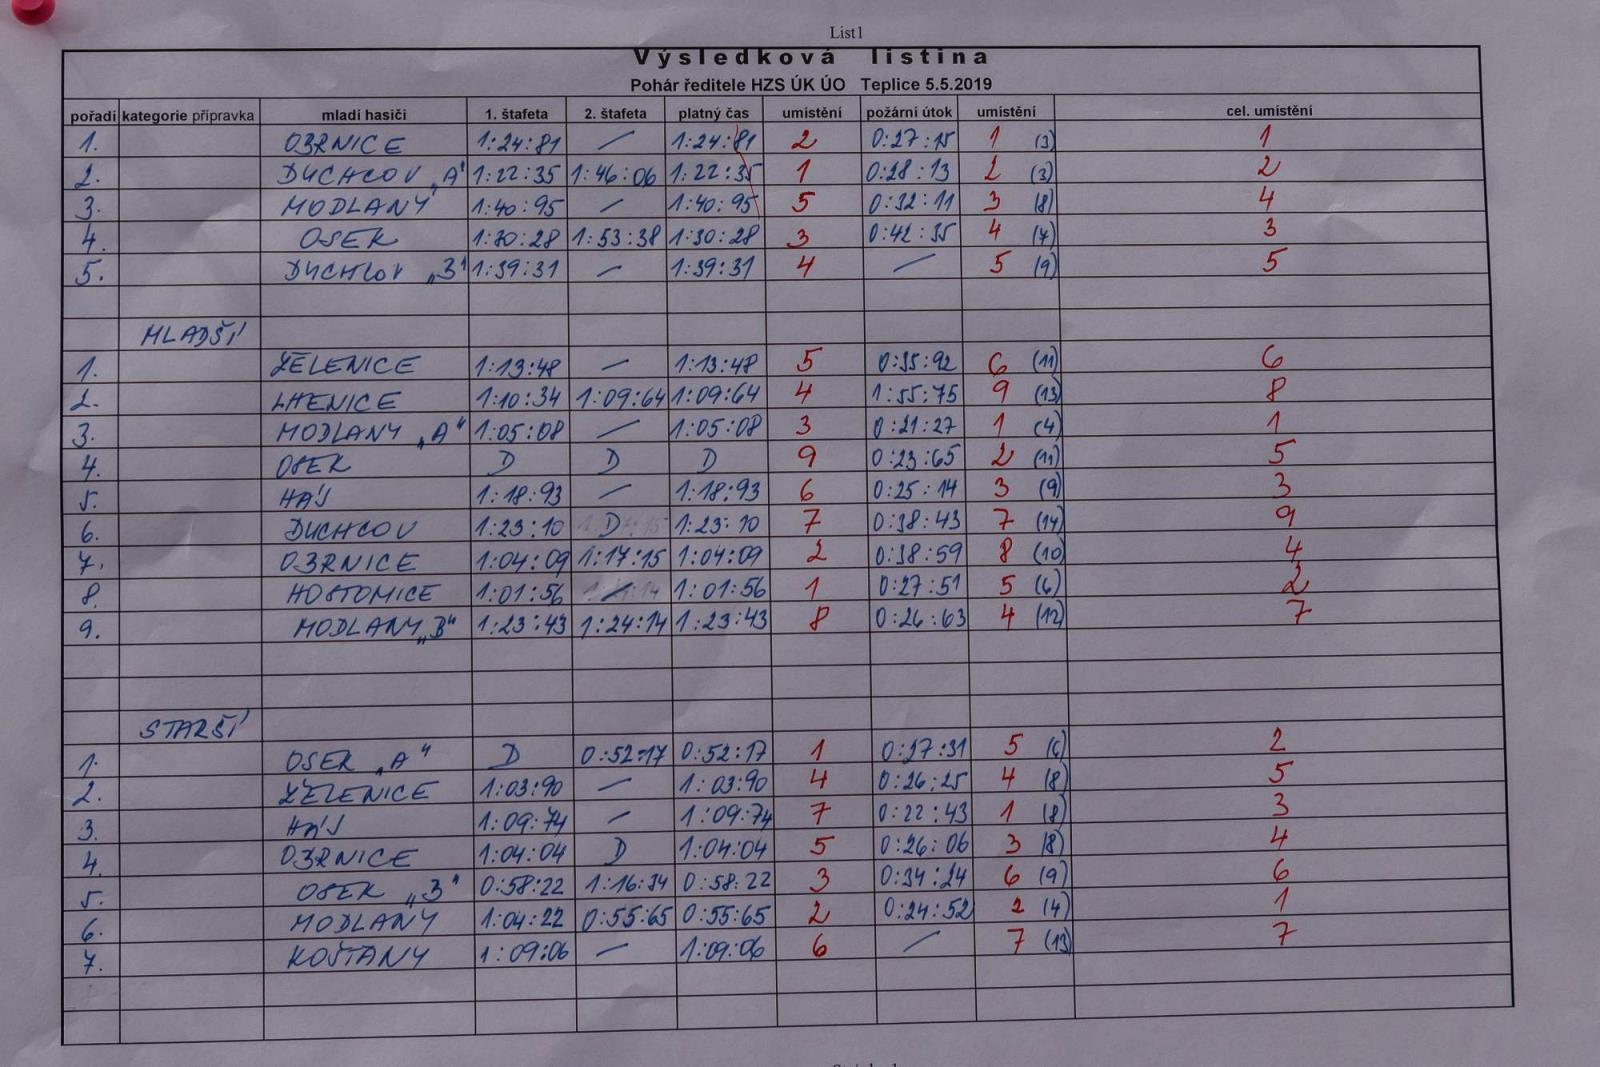 List1
Výsledková listina
Pohár ředitele HZS ÚK ÚO Teplice 5.5.2019
pořadí kategorie přípravka mladí hasiči 1. štafeta 2. štafeta platný čas umístění požární útok umístění cel. umístění
1. OBRNICE 1:24:81 — 1:24:81 2 0:27:15 1 (3) 1
2. DUCHCOV „A" 1:22:35 1:46:06 1:22:35 1 0:28:13 2 (3) 2
3. MODLANY 1:40:95 — 1:40:95 5 0:32:11 3 (8) 4
4. OSEK 1:30:28 1:53:38 1:30:28 3 0:42:35 4 (7) 3
5. DUCHCOV „B" 1:39:31 — 1:39:31 4 — 5 (9) 5
MLADŠÍ
1. ŽELENICE 1:13:48 — 1:13:48 5 0:35:92 6 (11) 6
2. LHENICE 1:10:34 1:09:64 1:09:64 4 1:55:75 9 (13) 8
3. MODLANY „A" 1:05:08 — 1:05:08 3 0:21:27 1 (4) 1
4. OSEK D D D 9 0:23:65 2 (11) 5
5. HÁJ 1:18:93 — 1:18:93 6 0:25:14 3 (9) 3
6. DUCHCOV 1:23:10 D 1:23:10 7 0:38:43 7 (14) 9
7. OBRNICE 1:04:09 1:17:15 1:04:09 2 0:38:59 8 (10) 4
8. HOSTOMICE 1:01:56 — 1:01:56 1 0:27:51 5 (6) 2
9. MODLANY „B" 1:23:43 1:24:14 1:23:43 8 0:26:63 4 (12) 7
STARŠÍ
1. OSEK „A" D 0:52:17 0:52:17 1 0:27:31 5 (6) 2
2. ŽELENICE 1:03:90 — 1:03:90 4 0:26:25 4 (8) 5
3. HÁJ 1:09:74 — 1:09:74 7 0:22:43 1 (8) 3
4. OBRNICE 1:04:04 D 1:04:04 5 0:26:06 3 (8) 4
5. OSEK „B" 0:58:22 1:16:34 0:58:22 3 0:34:24 6 (9) 6
6. MODLANY 1:04:22 0:55:65 0:55:65 2 0:24:52 2 (4) 1
7. KOŠŤANY 1:09:06 — 1:09:06 6 — 7 (13) 7